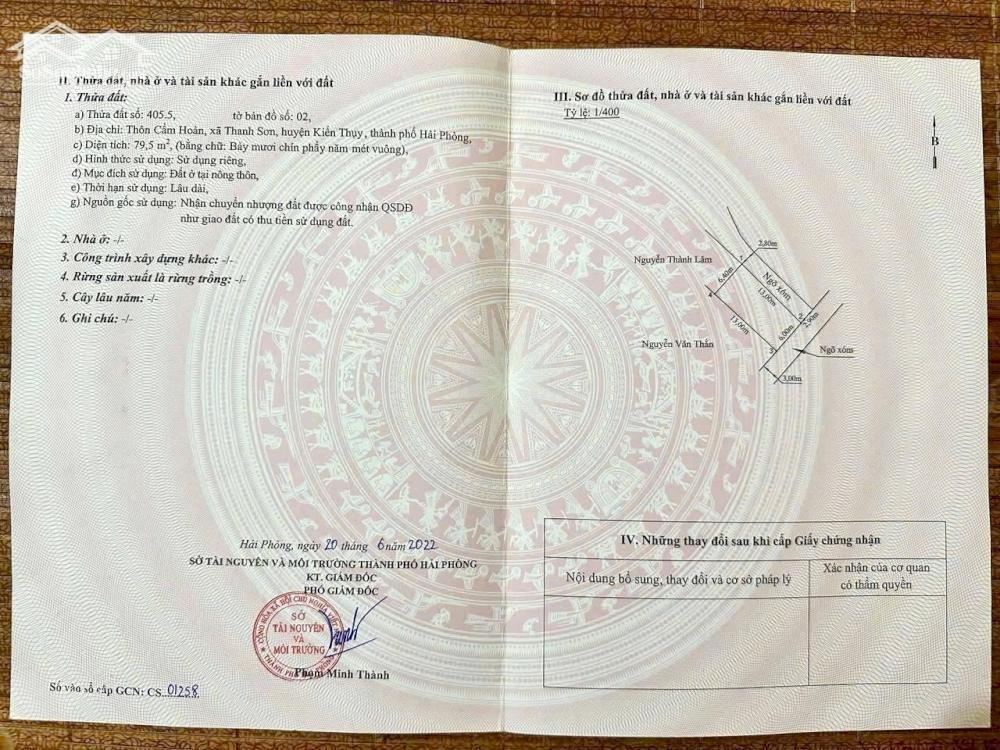 II. Thửa đất, nhà ở và tài sản khác gắn liền với đất
1. Thửa đất:
a) Thửa đất số: 405.5, tờ bản đồ số: 02,
b) Địa chỉ: Thôn Cẩm Hoàn, xã Thanh Sơn, huyện Kiến Thụy, thành phố Hải Phòng,
c) Diện tích: 79,5 m², (bằng chữ: Bảy mươi chín phẩy năm mét vuông),
d) Hình thức sử dụng: Sử dụng riêng,
đ) Mục đích sử dụng: Đất ở tại nông thôn,
e) Thời hạn sử dụng: Lâu dài,
g) Nguồn gốc sử dụng: Nhận chuyển nhượng đất được công nhận QSDĐ
như giao đất có thu tiền sử dụng đất.
2. Nhà ở: -/-
3. Công trình xây dựng khác: -/-
4. Rừng sản xuất là rừng trồng: -/-
5. Cây lâu năm: -/-
6. Ghi chú: -/-
Hải Phòng, ngày 20 tháng 6 năm 2022
SỞ TÀI NGUYÊN VÀ MÔI TRƯỜNG THÀNH PHỐ HẢI PHÒNG
KT. GIÁM ĐỐC
PHÓ GIÁM ĐỐC
CỘNG HÒA XÃ HỘI CHỦ NGHĨA VIỆT
SỞ
TÀI NGUYÊN
VÀ
MÔI TRƯỜNG
THÀNH PHỐ
Phạm Minh Thành
Số vào sổ cấp GCN: CS 01258
III. Sơ đồ thửa đất, nhà ở và tài sản khác gắn liền với đất
Tỷ lệ: 1/400
B
2,80m
Nguyễn Thành Lâm
1
6,40m
Ngõ xóm
13,00m
4
2
13,00m
6,00m
2,90m
Nguyễn Văn Thấn
3
Ngõ xóm
3,00m
IV. Những thay đổi sau khi cấp Giấy chứng nhận
Nội dung bổ sung, thay đổi và cơ sở pháp lý
Xác nhận của cơ quan
có thẩm quyền